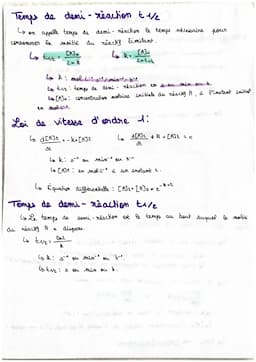 Temps de demi-réaction t 1/2
↳ on appelle temps de demi-réaction le temps nécessaire pour
consommer la moitié du réactif limitant.
↳ t1/2 = [A]0 / 2×k ↳ k = [A]0 / 2×t1/2
↳ k :
↳ t1/2 : temps de demi-réaction en s ou min ou h
↳ [A]0 : concentration molaire initiale du réactif A, à l'instant initial
en
Loi de vitesse d'ordre 1:
↳ d[A]t / dt = -k×[A]t ↳ d[A]t / dt + k×[A]t = 0
↳ k : s⁻¹ ou min⁻¹ ou h⁻¹
↳ [A]t : en mol.L⁻¹ à un instant t.
↳ Équation différentielle : [A]t = [A]0 × e^-k×t
Temps de demi-réaction t1/2
↳ Le temps de demi-réaction est le temps au bout duquel la moitié
du réactif A a disparu.
↳ t1/2 = ln2 / k
↳ k : s⁻¹ ou min⁻¹ ou h⁻¹.
↳ t1/2 : s ou min ou h.